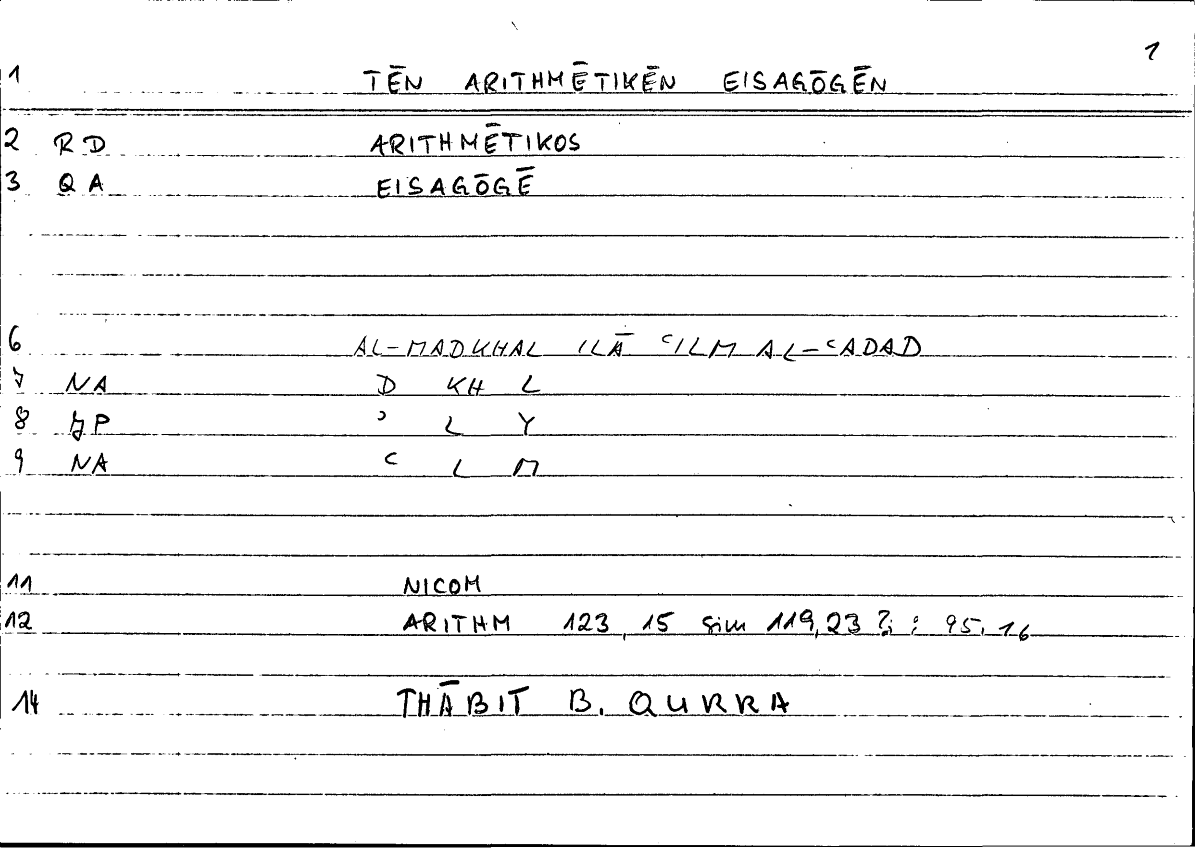 1
1 TĒN ARITHMĒTIKĒN EISAGŌGĒN
2 RD ARITHMĒTIKOS
3 QA EISAGŌGĒ
6 AL-MADKHAL ILĀ ʿILM AL-ʿADAD
7 NA D KH L
8 P ʾ L Y
9 NA ʿ L M
11 NICOM
12 ARITHM 123,15 sim 119,23 ?; : 95,16
14 THĀBIT B. QURRA